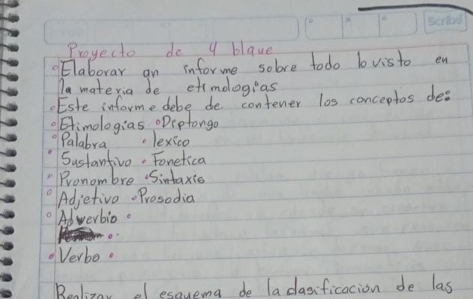 Scribd
Proyecto de 4 blque
Elaborar un informe sobre todo lo visto en
la materia de etimologias
Este informe debe de contener los conceptos de:
Etimologias • Diptongo
Palabra • lexico
Sustantivo • Fonetica
Pronombre • Sintaxis
Adjetivo • Prosodia
Adverbio •
Verbo •
Realizar el esquema de la clasificación de las